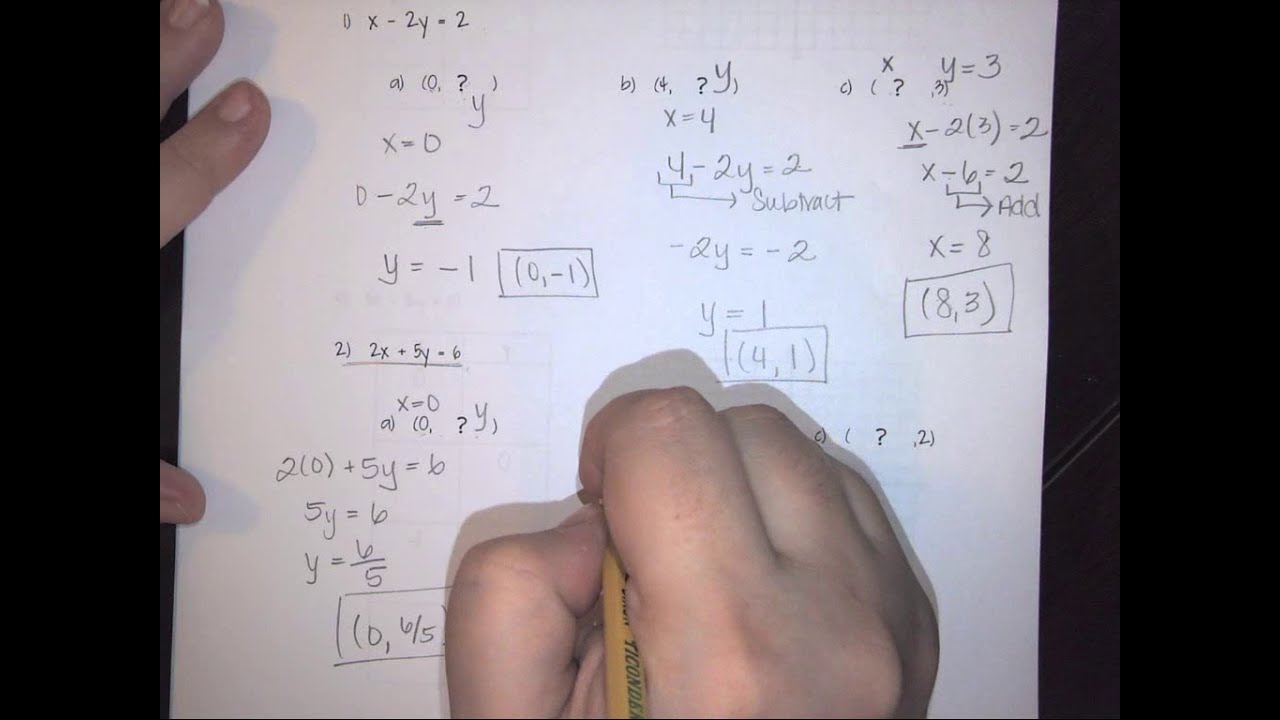 1) x - 2y = 2
a) (0, ? )
y
x = 0
0 - 2y = 2
y = -1 (0, -1)
b) (4, ? y)
x = 4
4 - 2y = 2
Subtract
-2y = -2
y = 1
(4, 1)
x y = 3
c) ( ? ,3)
x - 2(3) = 2
x - 6 = 2
Add
x = 8
(8, 3)
2) 2x + 5y = 6
x = 0
a) (0, ? y)
2(0) + 5y = 6
5y = 6
y = 6/5
(0, 6/5
c) ( ? ,2)